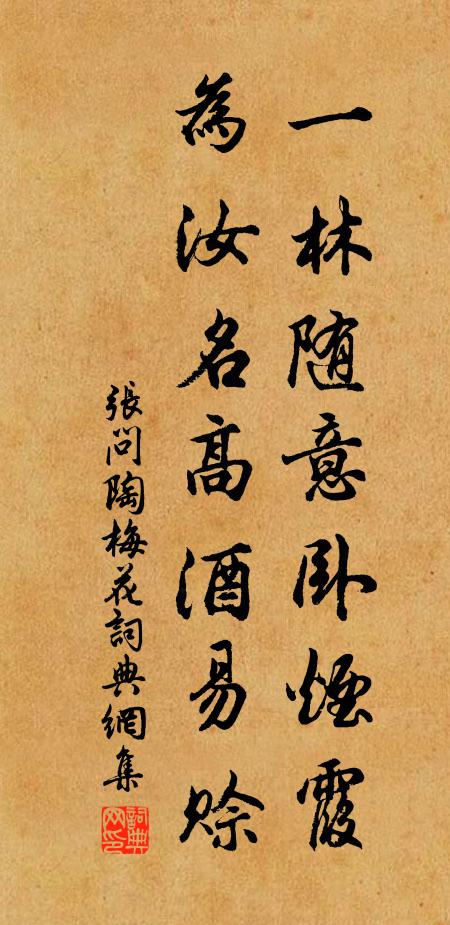 一林随意卧煙霞
為汝名高酒易賒
張問陶梅花詞典網集
詞典网印